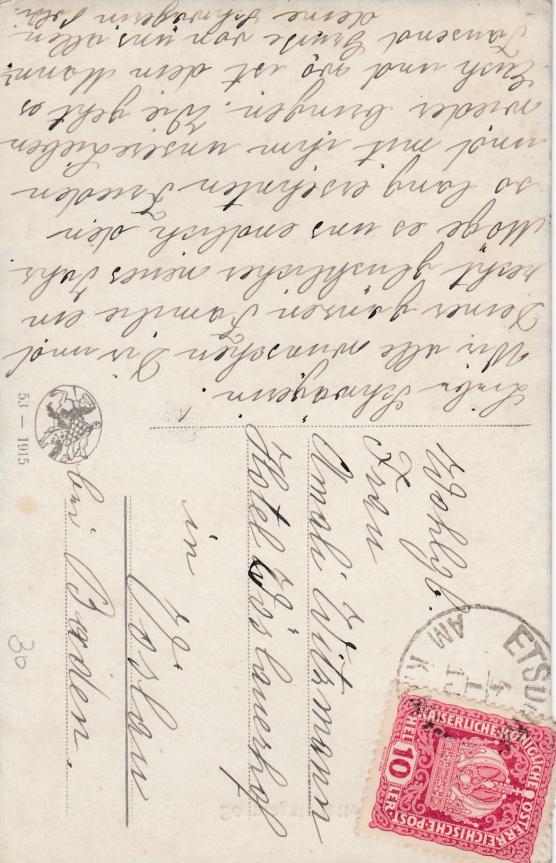 Liebe Schwägerin.
Wir alle wünschen Dir und
Deiner ganzen Familie ein
recht glückliches neues Jahr
Möge es uns endlich den
so lang ersehnten Frieden
und mit ihm unsere Lieben
wieder bringen. Wie geht es
Euch und wo ist dein Mann?
Tausend Grüße von uns allen
deine Schwägerin
Wohlgb.
Frau
Amali Witzmann
Hotel Vöslauerhof
in
Vöslau
bei Baden.
53 – 1915
30
ETSD
AM K
KAISERLICHE KÖNIGLICHE
ÖSTERREICHISCHE POST
HELLER
10